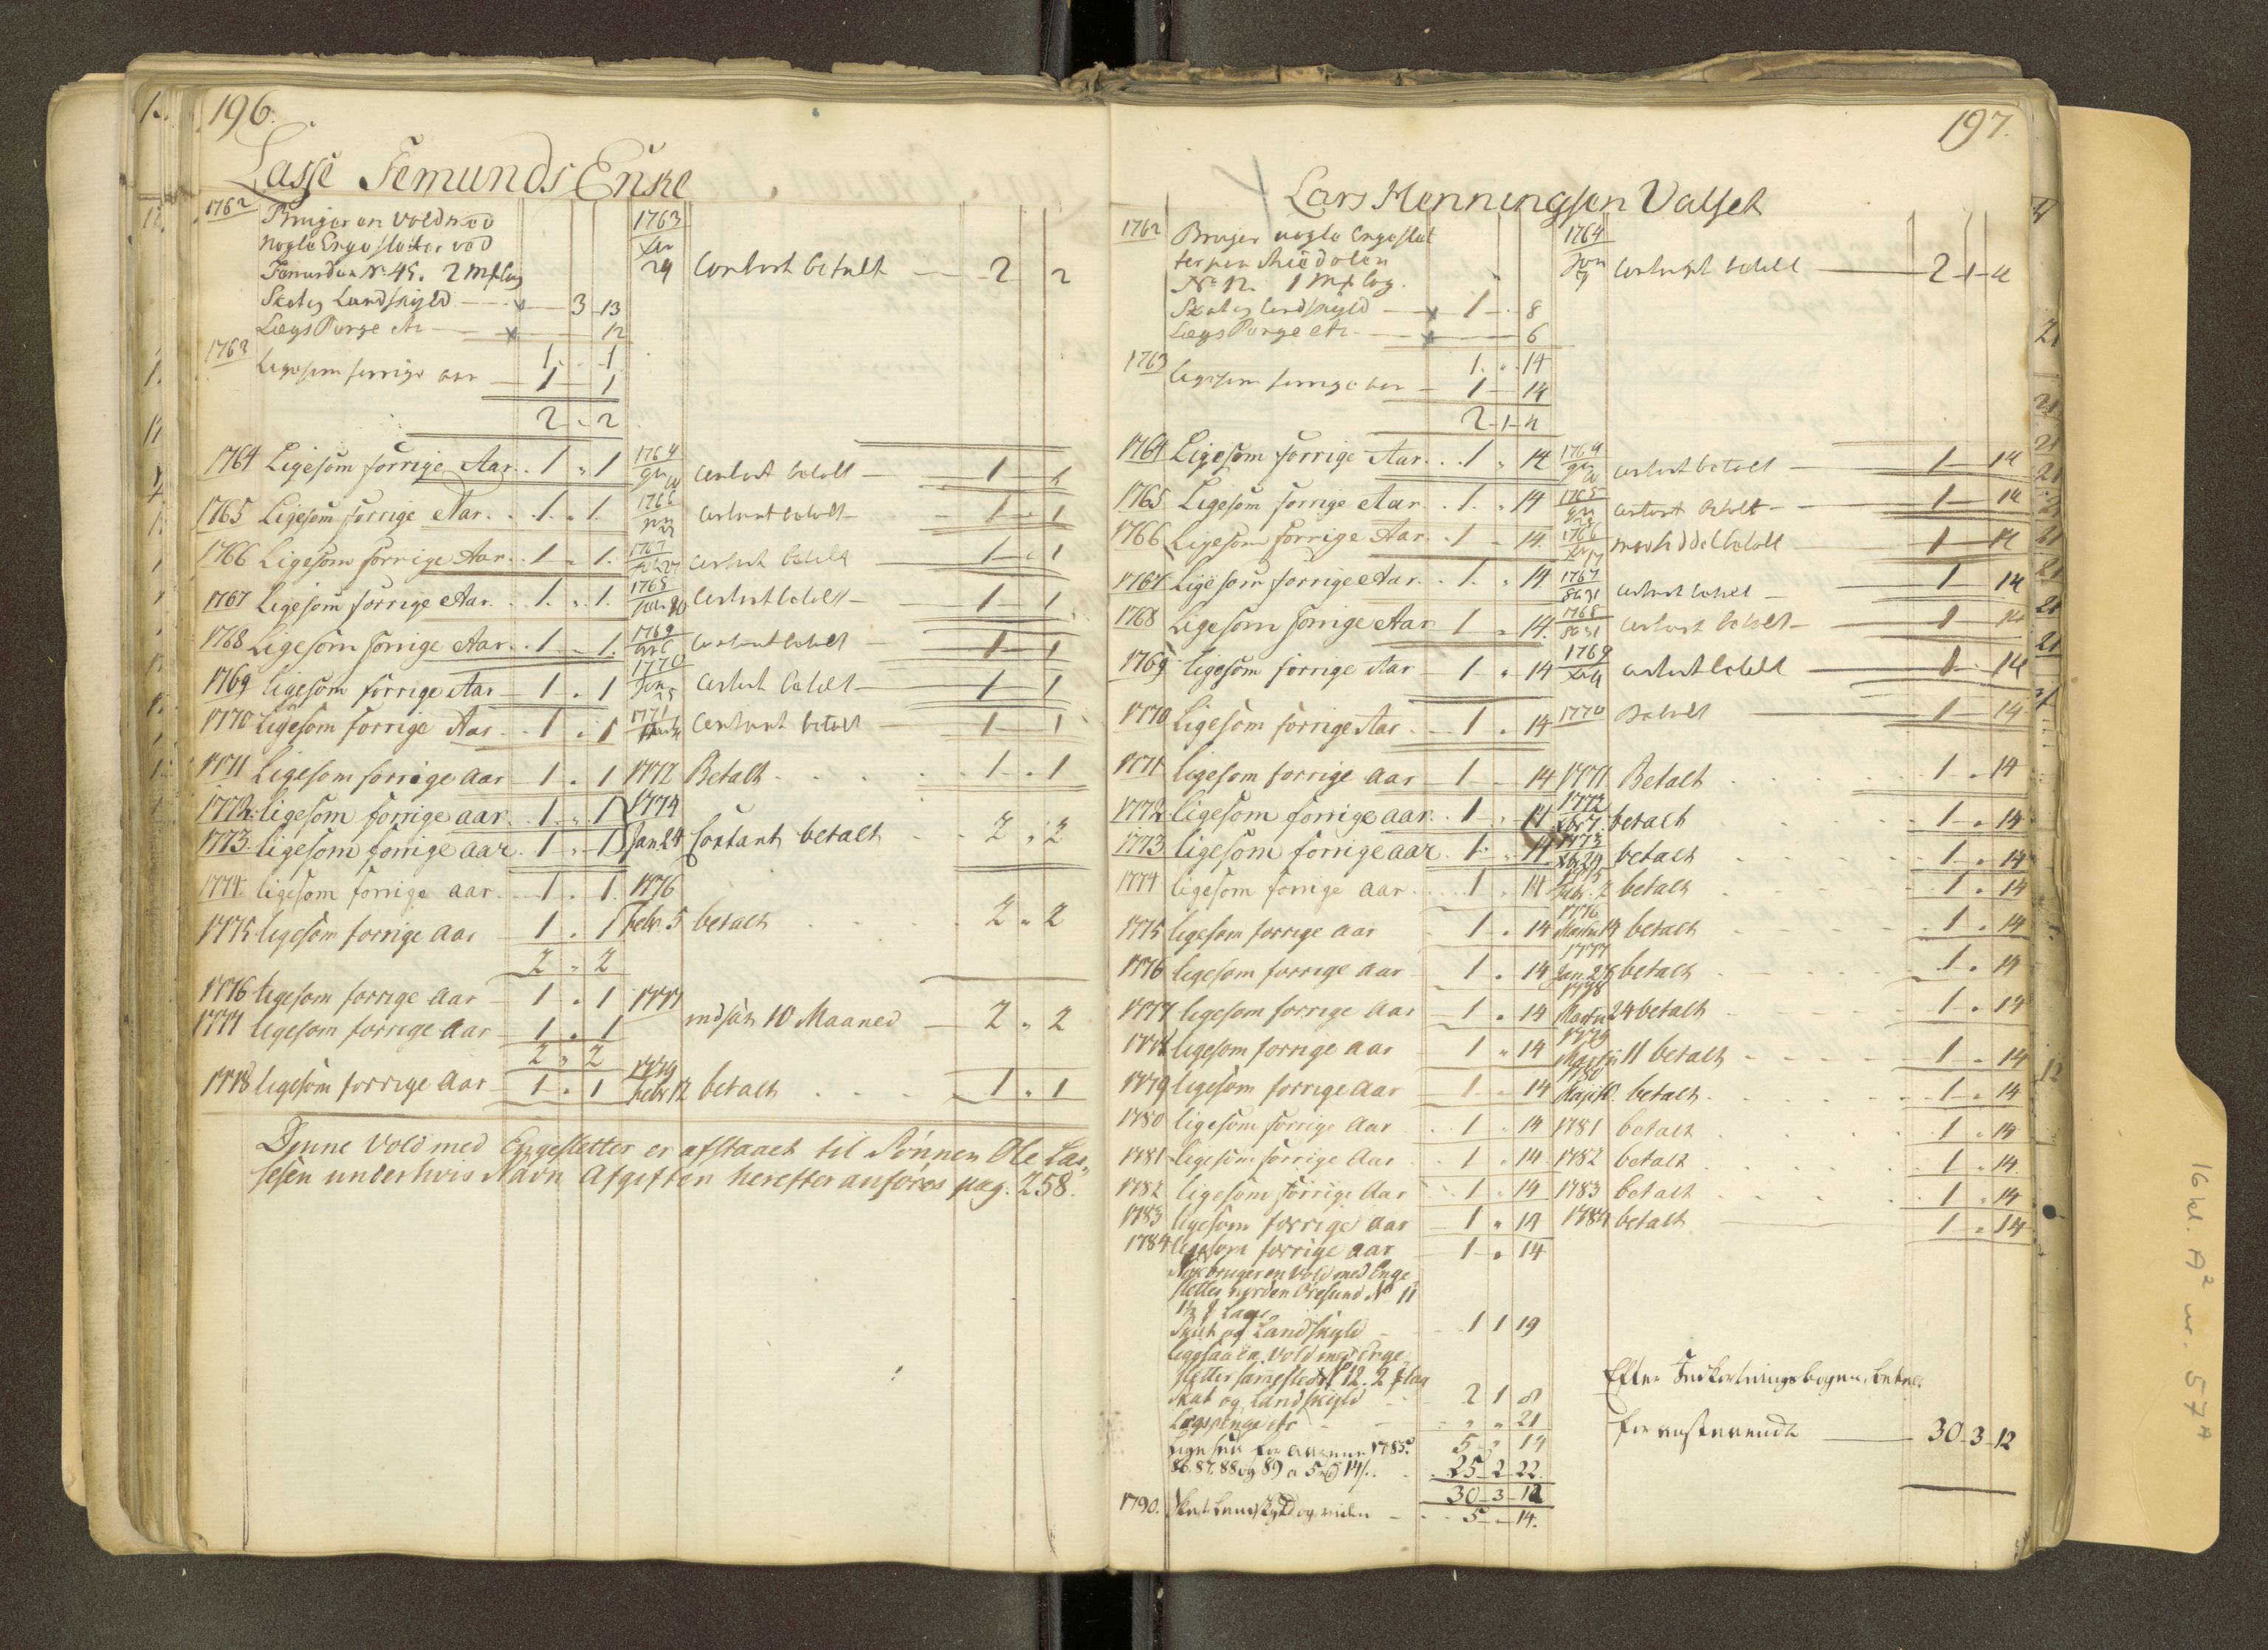 196.
Lasse Femunds Enke
1762 Bruger en Vold med
nogle Engesletter ved
Femunden No 45. 2 Mk lag
Skat og Landskyld 3 13
Lægs Penge etc 12
1 " 1
1763 Ligesom forrige aar 1 " 1
2 " 2
1763 29 Contant betalt 2 2
1764 Ligesom forrige Aar 1 " 1 1764 Contant betalt 1 1
1765 Ligesom forrige Aar 1 " 1 1766 Contant betalt 1 " 1
1766 Ligesom forrige Aar 1 " 1 1767 Contant betalt 1 " 1
1767 Ligesom forrige Aar 1 " 1 1768 Contant betalt 1 1
1768 Ligesom forrige Aar 1 " 1 1769 Contant betalt 1 1
1769 ligesom forrige Aar 1 " 1 1770 Contant betalt 1 1
1770 Ligesom forrige Aar 1 " 1 1771 Contant betalt 1 1
1771 Ligesom forrige aar 1 " 1 1772 Betalt 1 " 1
1772 ligesom forrige aar 1 " 1 1774
1773 ligesom forrige aar 1 " 1 Jan 24 Contant betalt 2 " 2
1774 ligesom forrige aar 1 " 1 1776
1775 ligesom forrige aar 1 " 1 Febr. 5 betalt 2 " 2
2 " 2
1776 ligesom forrige aar 1 " 1 1777
1777 ligesom forrige aar 1 " 1 indsat 10 Maaned 2 " 2
2 " 2
1778 ligesom forrige Aar 1 " 1 1779 Febr 12 betalt 1 " 1
Denne Vold med Engesletter er afstaaet til Sønnen Ole Las„
sesen under hvis Navn Afgiften herefter anføres pag. 258.
197.
Lars Henningsen Valset
1762 Bruger nogle Engeslet
ter
No 12. 1 Mk lag.
Skat og landskyld 1 8
Lægs Penge etc 6
1 " 14
1763 ligesom forrige aar 1 14
2 1 4
1764 Jan 7 Contant betalt 2 1 4
1764 Ligesom forrige Aar 1 " 14 1764 Contant betalt 1 14
1765 Ligesom forrige Aar 1 " 14 1765 Contant betalt 1 14
1766 Ligesom forrige Aar 1 14 1766 betalt 1 14
1767 Ligesom forrige Aar 1 " 14 1767 Contant betalt 1 14
1768 Ligesom forrige Aar 1 " 14 1768 Contant betalt 1 14
1769 ligesom forrige Aar 1 " 14 1769 Contant betalt 1 14
1770 Ligesom forrige Aar 1 " 14 1770 Betalt 1 14
1771 ligesom forrige aar 1 14 1771 Betalt 1 " 14
1772 ligesom forrige aar 1 " 14 1772 Xbr 7 betalt 1 " 14
1773 ligesom forrige aar 1 " 14 1773 Xbr 29 betalt 1 " 14
1774 ligesom forrige aar 1 " 14 1775 Febr. 7 betalt 1 " 14
1775 ligesom forrige Aar 1 " 14 1776 Martii 14 betalt 1 " 14
1776 ligesom forrige Aar 1 " 14 1777 Jan. 27 betalt 1 " 14
1777 ligesom forrige Aar 1 " 14 1778 Martii 24 betalt 1 " 14
1778 ligesom forrige aar 1 " 14 1779 Martii 11 betalt 1 " 14
1779 ligesom forrige Aar 1 " 14 1780 Maji 10. betalt 1 " 14
1780 ligesom forrige Aar 1 " 14 1781 betalt 1 " 14
1781 ligesom forrige Aar 1 " 14 1782 betalt 1 " 14
1782 ligesom forrige Aar 1 " 14 1783 betalt 1 " 14
1783 ligesom forrige aar 1 " 14 1784 betalt 1 " 14
1784 ligesom forrige aar 1 " 14
bruger en Vold med Enge„
sletter norden Øresund No 11
Skat og Landskyld 1 1 19
ligesaa en Vold med Enge„
sletter samestedt 12. 2 lag
Skat og Landskyld 2 1 8
Lægspenge etc " " 21
5 " 14
Ligesaa for aarene 1785.
86. 87. 88 og 89 a 5 rd 14 s. 25 2 22
30 3 12
Efter Indkortningsbogen betal.
for resterende 30 3 12
1790. Skat Landskyld og viden 5 " 14.
16 kl. A² nr. 57ᴬ